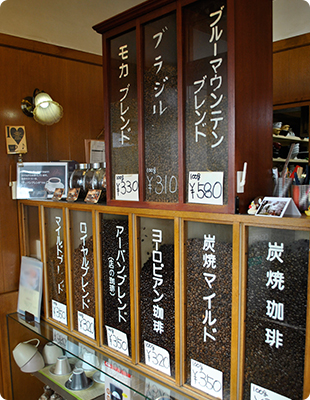 モカブレンド
100g
¥330
ブラジル
100g
¥310
ブルーマウンテン
ブレンド
100g
¥580
マイルドブレンド
¥350
ロイヤルブレンド
¥320
アーバンブレンド
¥320
ヨーロピアン珈琲
¥320
炭焼マイルド
¥350
炭焼珈琲